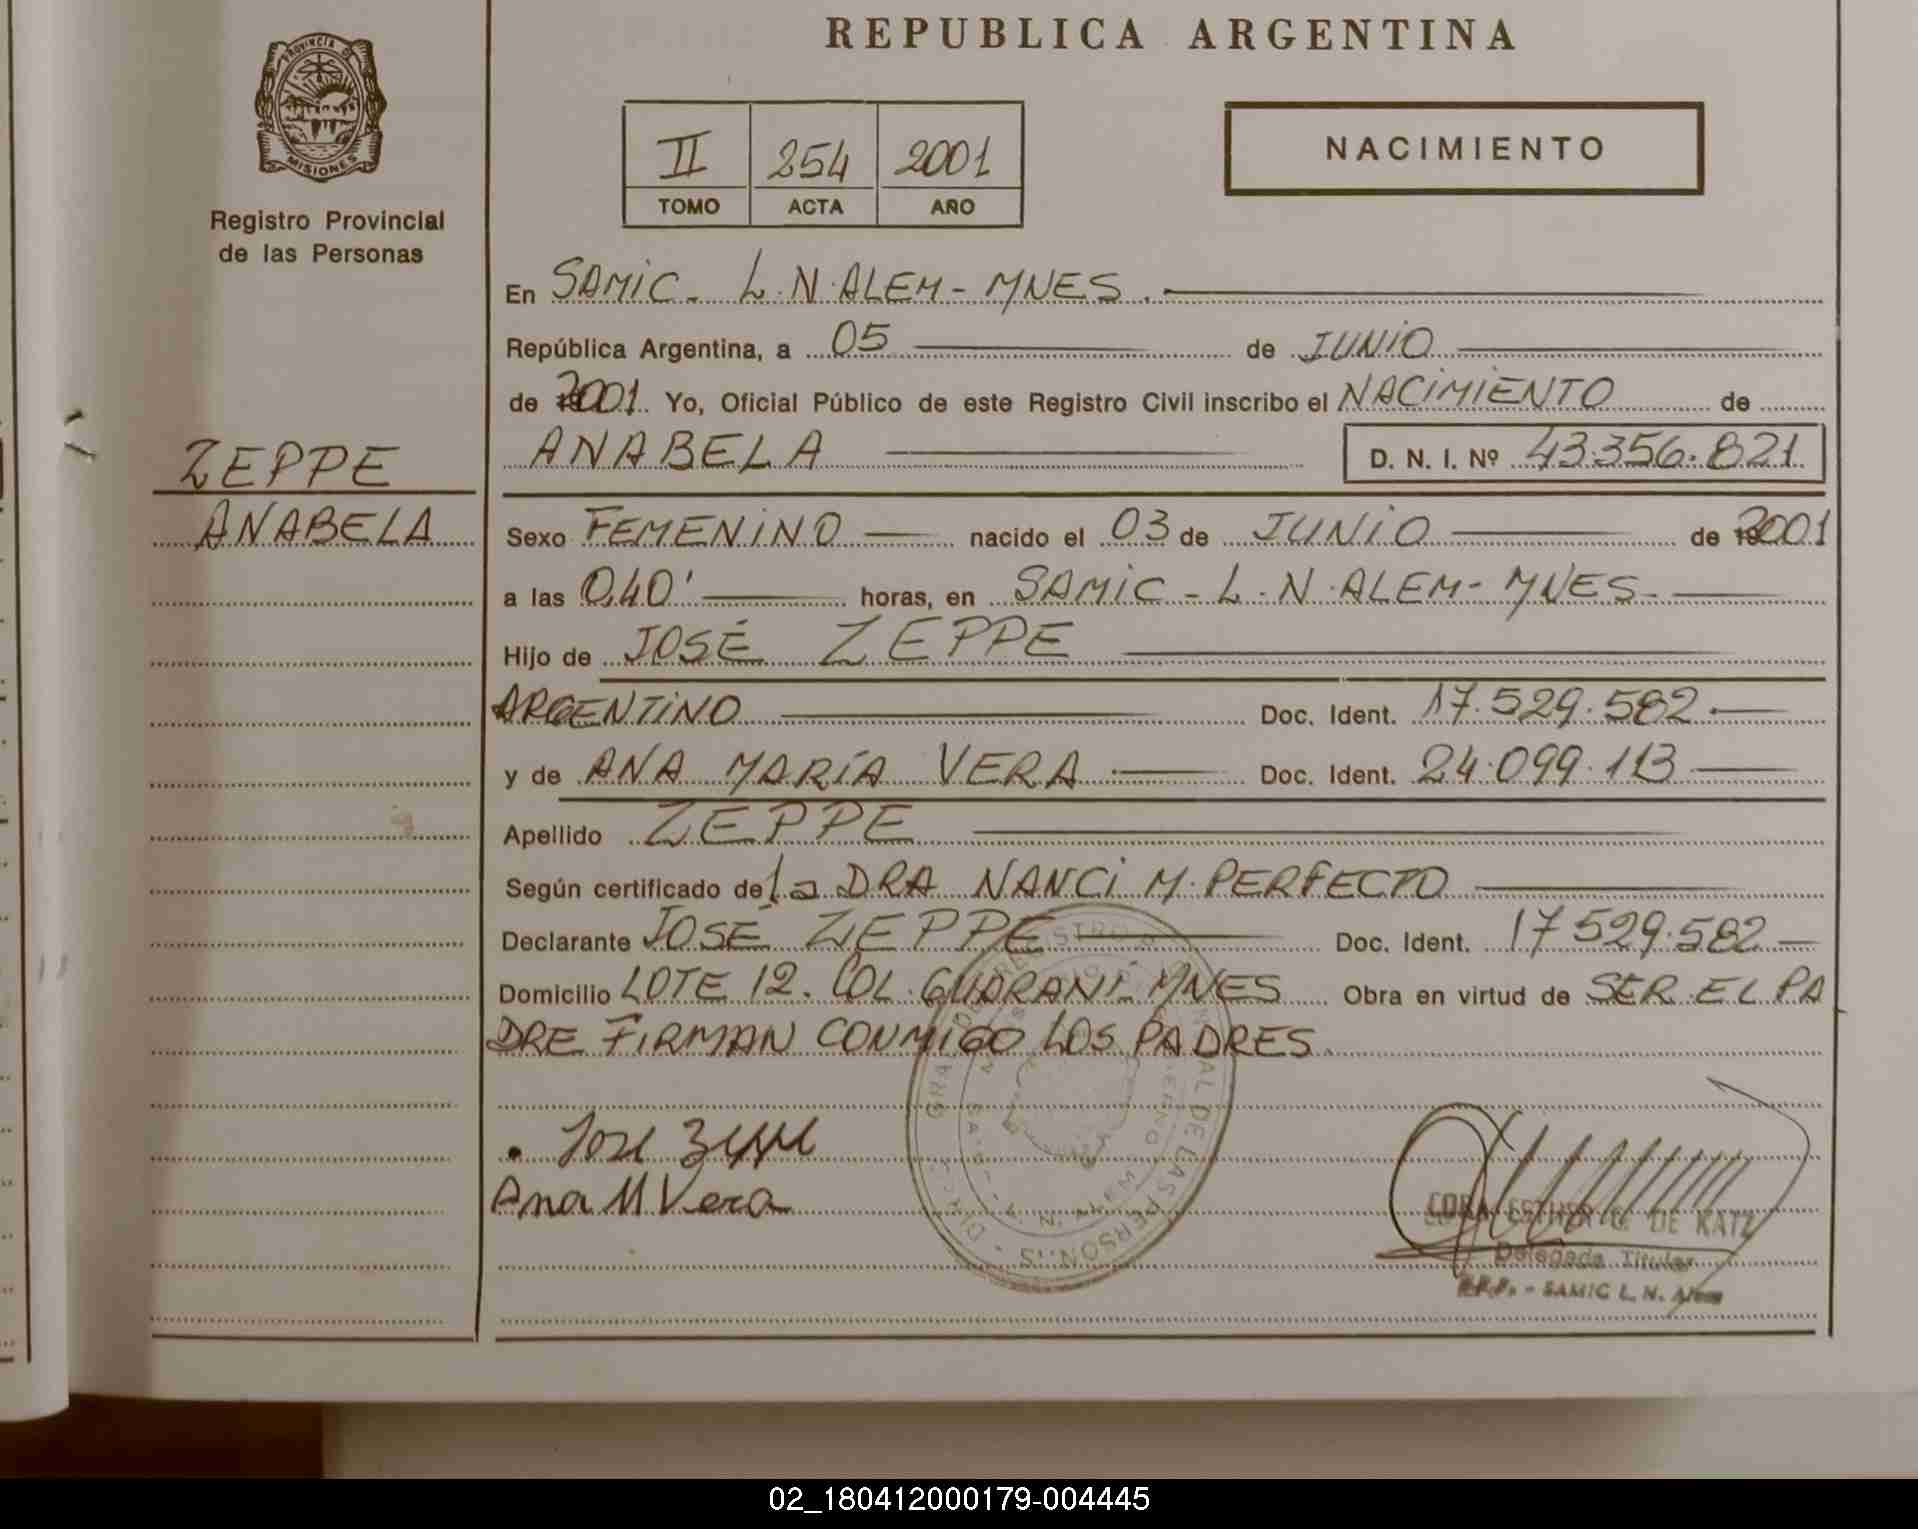 REPUBLICA ARGENTINA
PROVINCIA DE
MISIONES
Registro Provincial
de las Personas
II 254 2001
TOMO ACTA AÑO
NACIMIENTO
ZEPPE
ANABELA
En SAMIC - L.N.ALEM - MNES.
República Argentina, a 05 de JUNIO
de 2001. Yo, Oficial Público de este Registro Civil inscribo el NACIMIENTO de
ANABELA D. N. I. Nº 43.356.821
Sexo FEMENINO nacido el 03 de JUNIO de 2001
a las 0,40' horas, en SAMIC - L.N.ALEM - MNES
Hijo de JOSÉ ZEPPE
ARGENTINO Doc. Ident. 17.529.582.
y de ANA MARÍA VERA. Doc. Ident. 24.099.113
Apellido ZEPPE
Según certificado de la DRA NANCI M. PERFECTO
Declarante JOSÉ ZEPPE Doc. Ident. 17.529.582
Domicilio LOTE 12. COL. GUARANÍ MNES Obra en virtud de SER EL PA
DRE FIRMAN CONMIGO LOS PADRES.
Jose Zeppe
Ana M Vera
CORA ESTHER G. DE KATZ
Delegada Titular
R.P.P. - SAMIC L. N. Alem
02_180412000179-004445